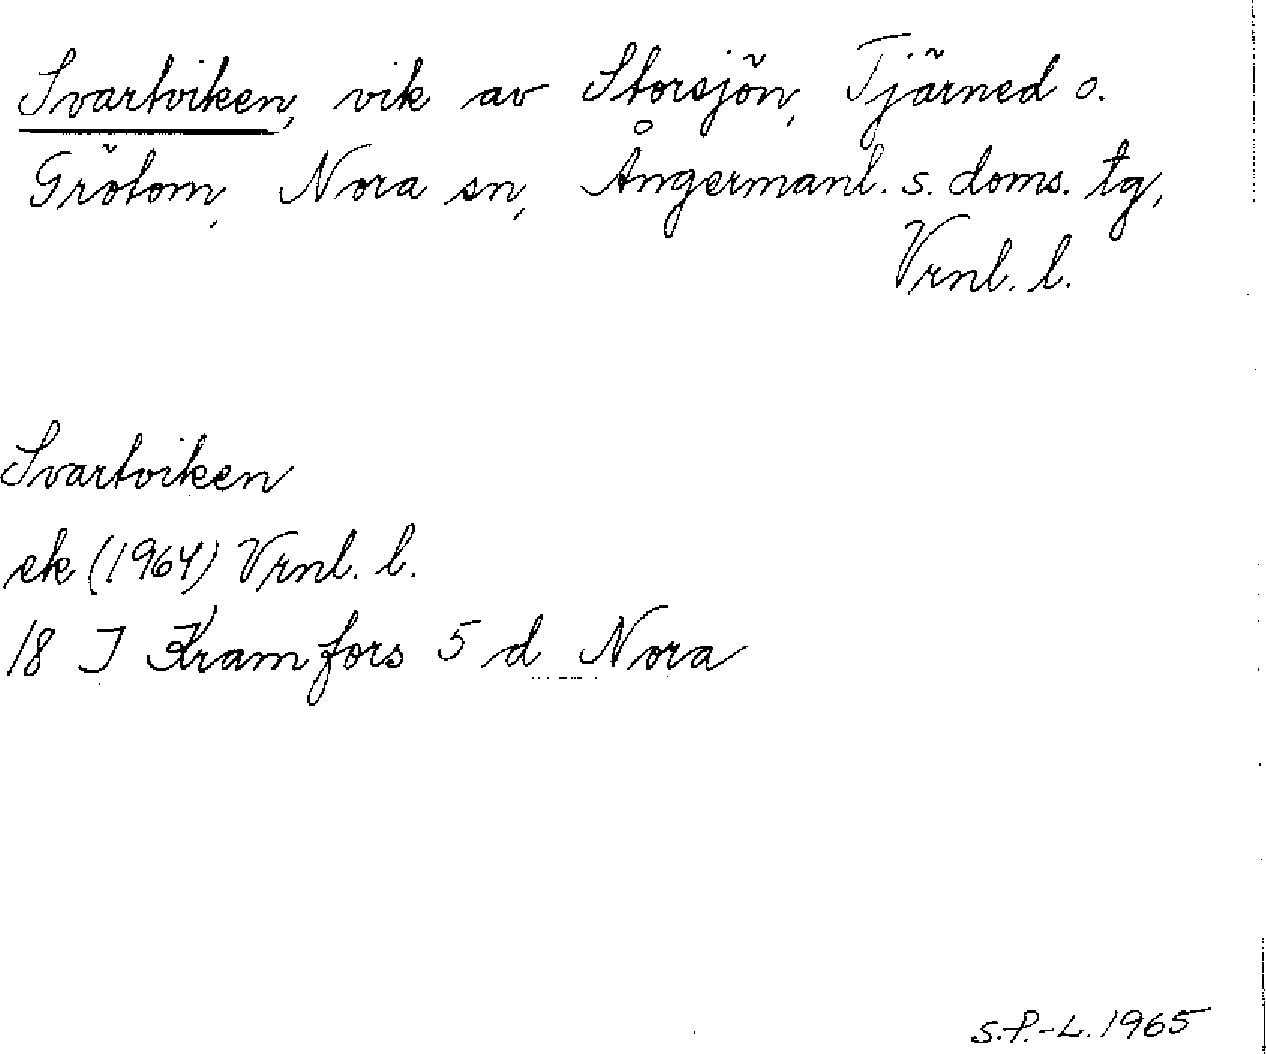 Svartviken, vik av Storsjön, Tjärned o.
Grötom, Nora sn, Ångermanl. s. doms. tg,
Vrnl. l.
Svartviken
ek (1964) Vrnl. l.
18 I Kramfors 5 d Nora
S.P.-L. 1965